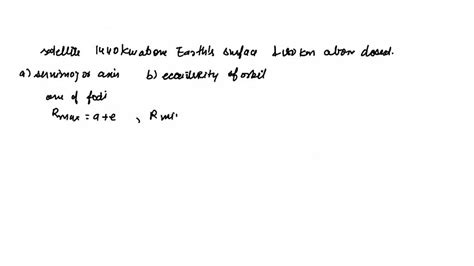 satellite 1440km above Earth's surface & 1100km above closed.
a) semimajor axis b) eccentricity of orbit
one of foci
Rmax = a+e , R mi